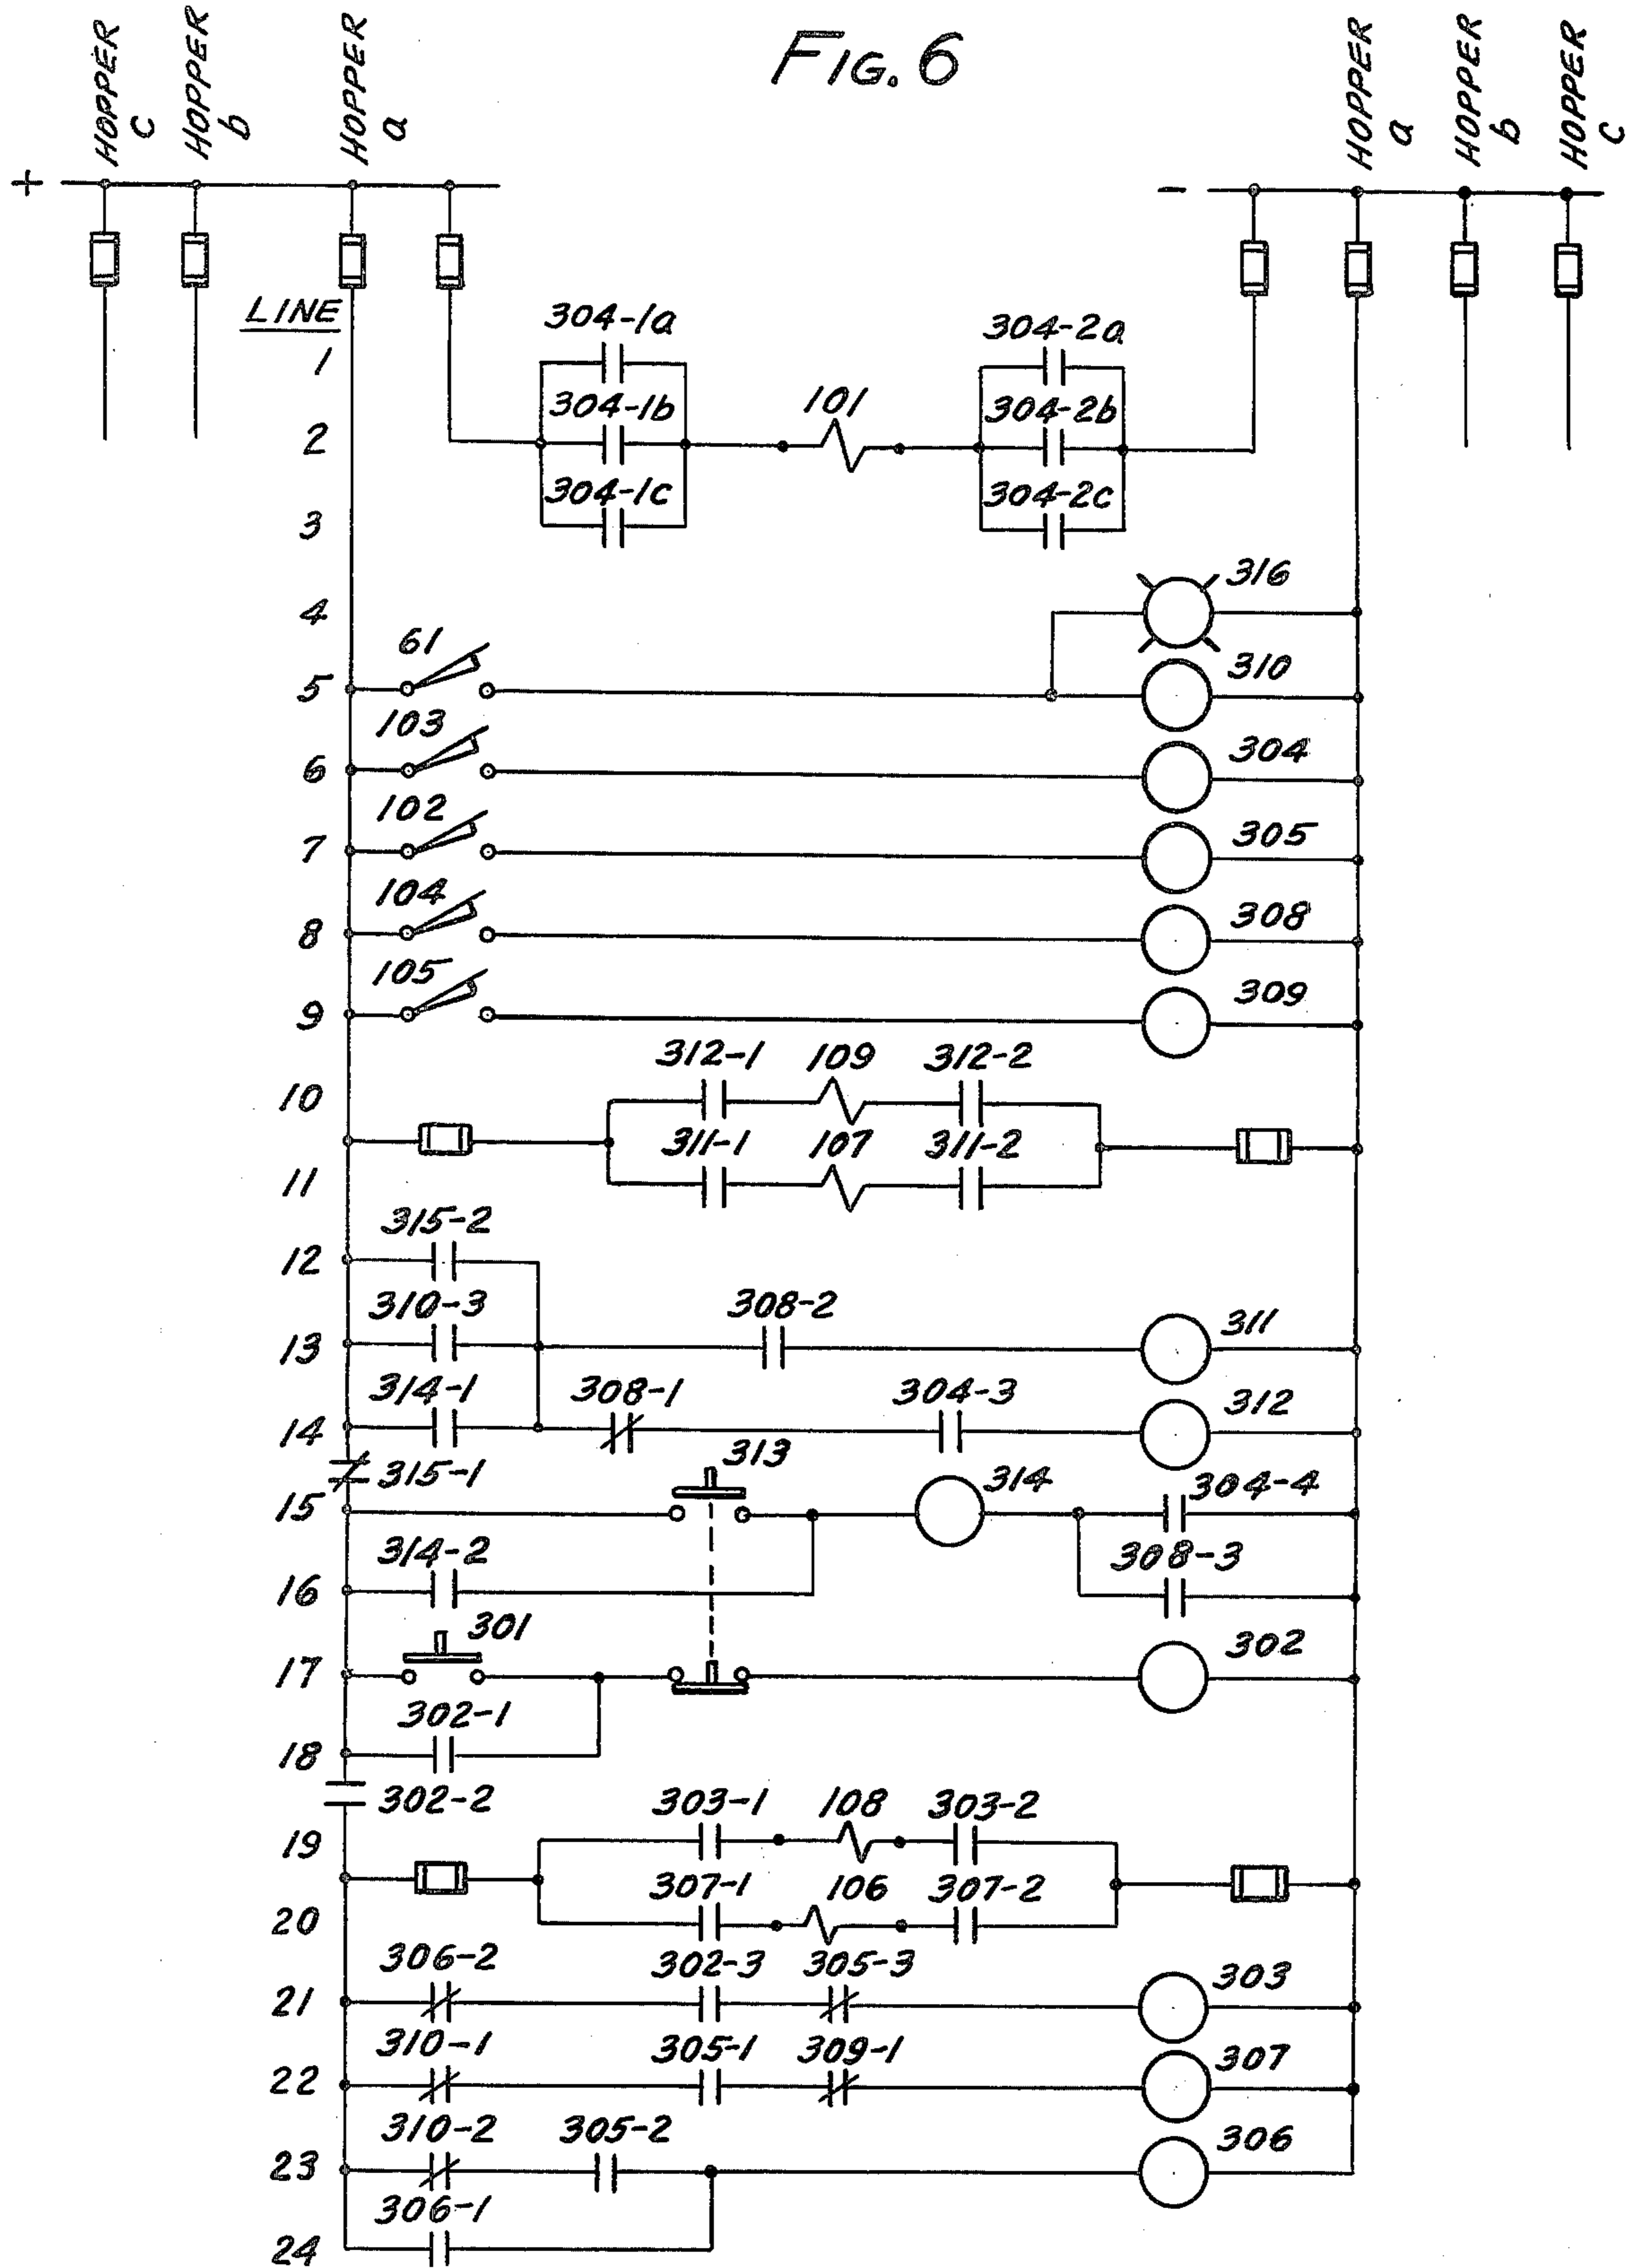 FIG. 6
HOPPER c
HOPPER b
HOPPER a
HOPPER a
HOPPER b
HOPPER c
+ -
LINE
304-1a 304-2a
1
304-1b 101 304-2b
2
304-1c 304-2c
3
316
4
61 310
5
103 304
6
102 305
7
104 308
8
105 309
9
312-1 109 312-2
10
311-1 107 311-2
11
315-2
12
310-3 308-2 311
13
314-1 308-1 304-3 312
14
315-1 313 314 304-4
15
314-2 308-3
16
301 302
17
302-1
18
302-2
303-1 108 303-2
19
307-1 106 307-2
20
306-2 302-3 305-3 303
21
310-1 305-1 309-1 307
22
310-2 305-2 306
23
306-1
24